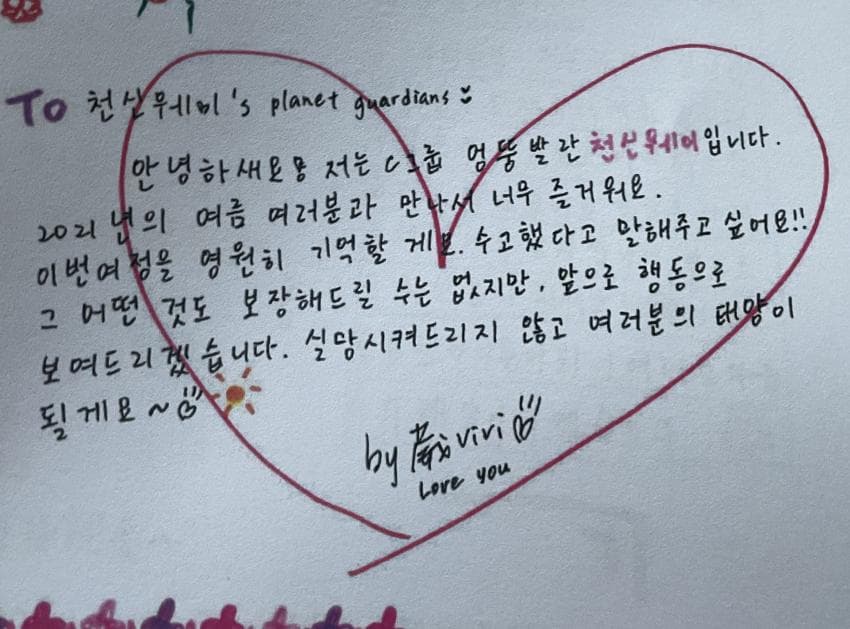 To 천신웨이's planet guardians
안녕하새요용 저는 C그룹 엉뚱발란 천신웨이입니다.
2021년의 여름 여러분과 만나서 너무 즐거워요.
이번여정을 영원히 기억할게요. 수고했다고 말해주고 싶어요!!
그 어떤 것도 보장해드릴 수는 없지만, 앞으로 행동으로
보여드리겠습니다. 실망시켜드리지 않고 여러분의 태양이
될게요~
by vivi
Love you